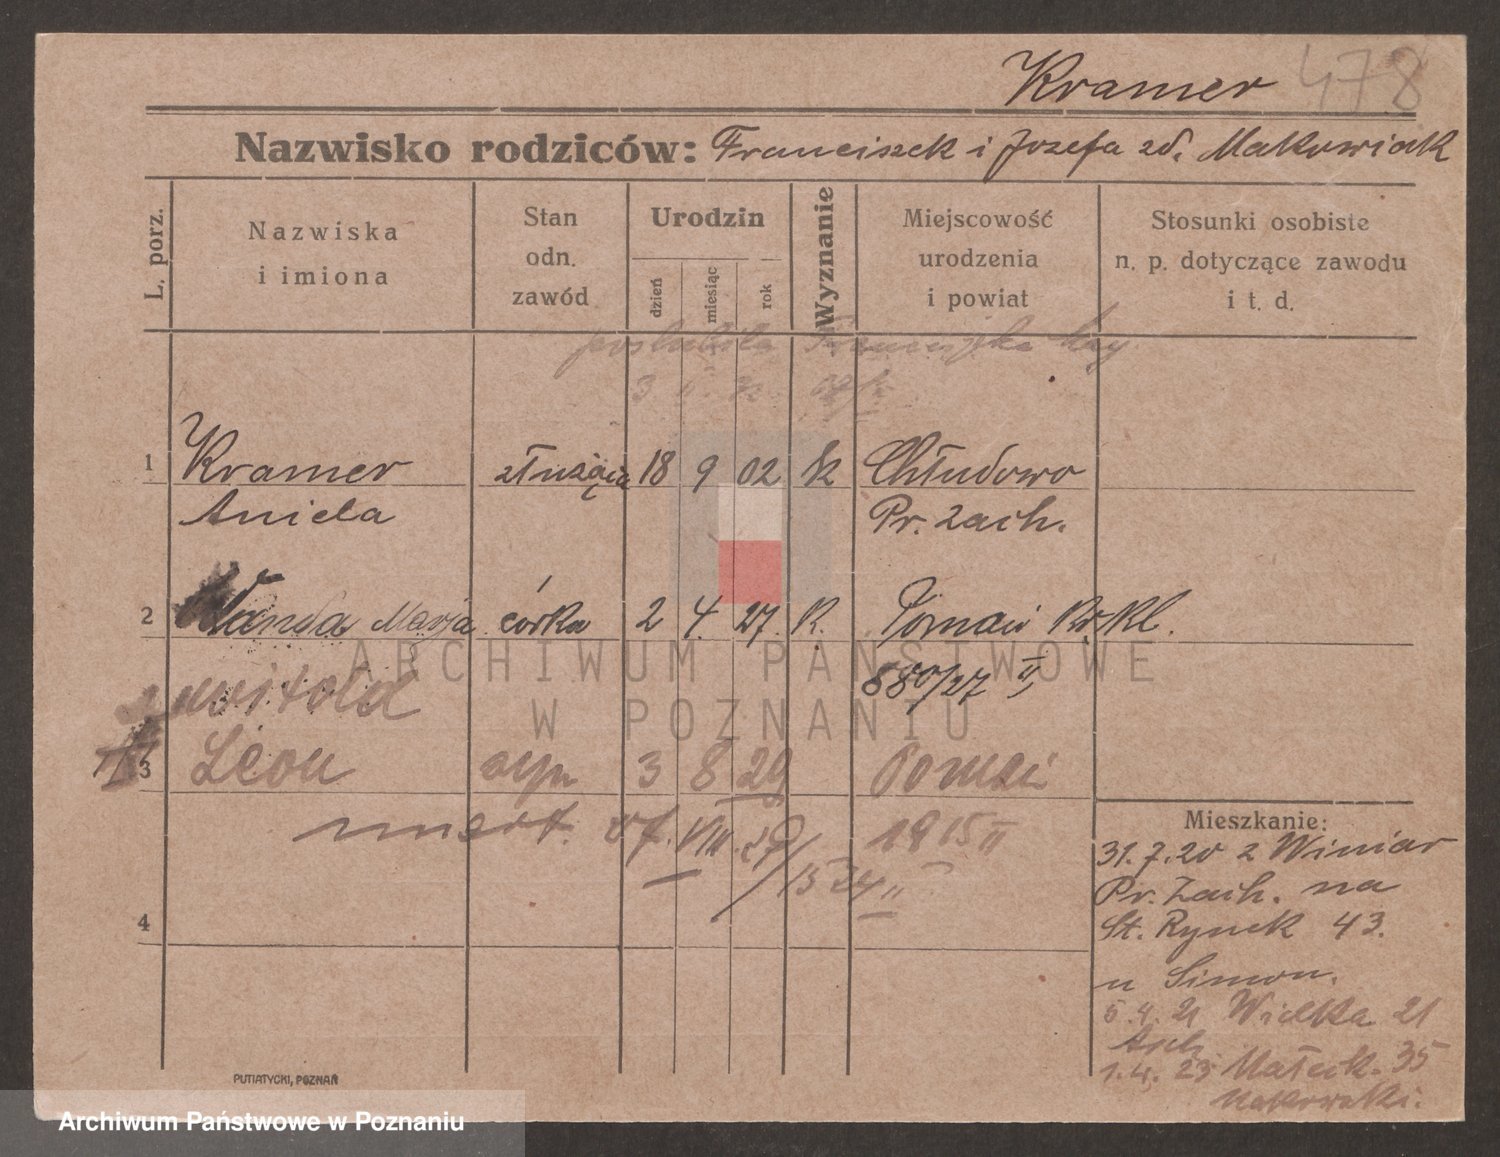 Kramer 478
Nazwisko rodziców: Franciszek i Józefa zd. Makowiak
L. porz.
Nazwiska
i imiona
Stan
odn.
zawód
Urodzin
dzień
miesiąc
rok
Wyznanie
Miejscowość
urodzenia
i powiat
Stosunki osobiste
n. p. dotyczące zawodu
i t. d.
poślubiła Franciszka
1 Kramer służąca 18 9 02 k Chłudowo
Aniela Pr. Zach.
2 Wanda Marja córka 2 4. 27. K. Poznań
880/27 II
Witold
3 Leon syn 3 8 29 Poznań
umarł. 27. VIII. 29 1915 II
1524 II
4
Mieszkanie:
31.7.20 z Winiar
Pr. Zach. na
St. Rynek 43.
u Simon.
5.4.21 Wielka 21
Asch
1.4.23 Małeck. 35
Makowski.
PUTIATYCKI, POZNAŃ
ARCHIWUM PAŃSTWOWE
W POZNANIU
Archiwum Państwowe w Poznaniu